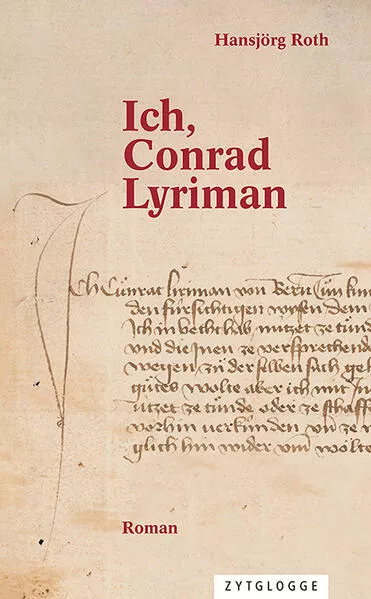 Hansjörg Roth
Ich,
Conrad
Lyriman
Ich Cůnrat liriman von Bern Tůn kun
den fürsichtigen wysen dem
Ich in becht hab nützet ze tůnd
und die Inen ze versprechende
wegen zů der selben sach geh
gůtes wolte aber ich mit In
ützet ze tůnde oder ze schaffe
vorhin verkünden und ze w
glich hin wider umb wölte
Roman
ZYTGLOGGE